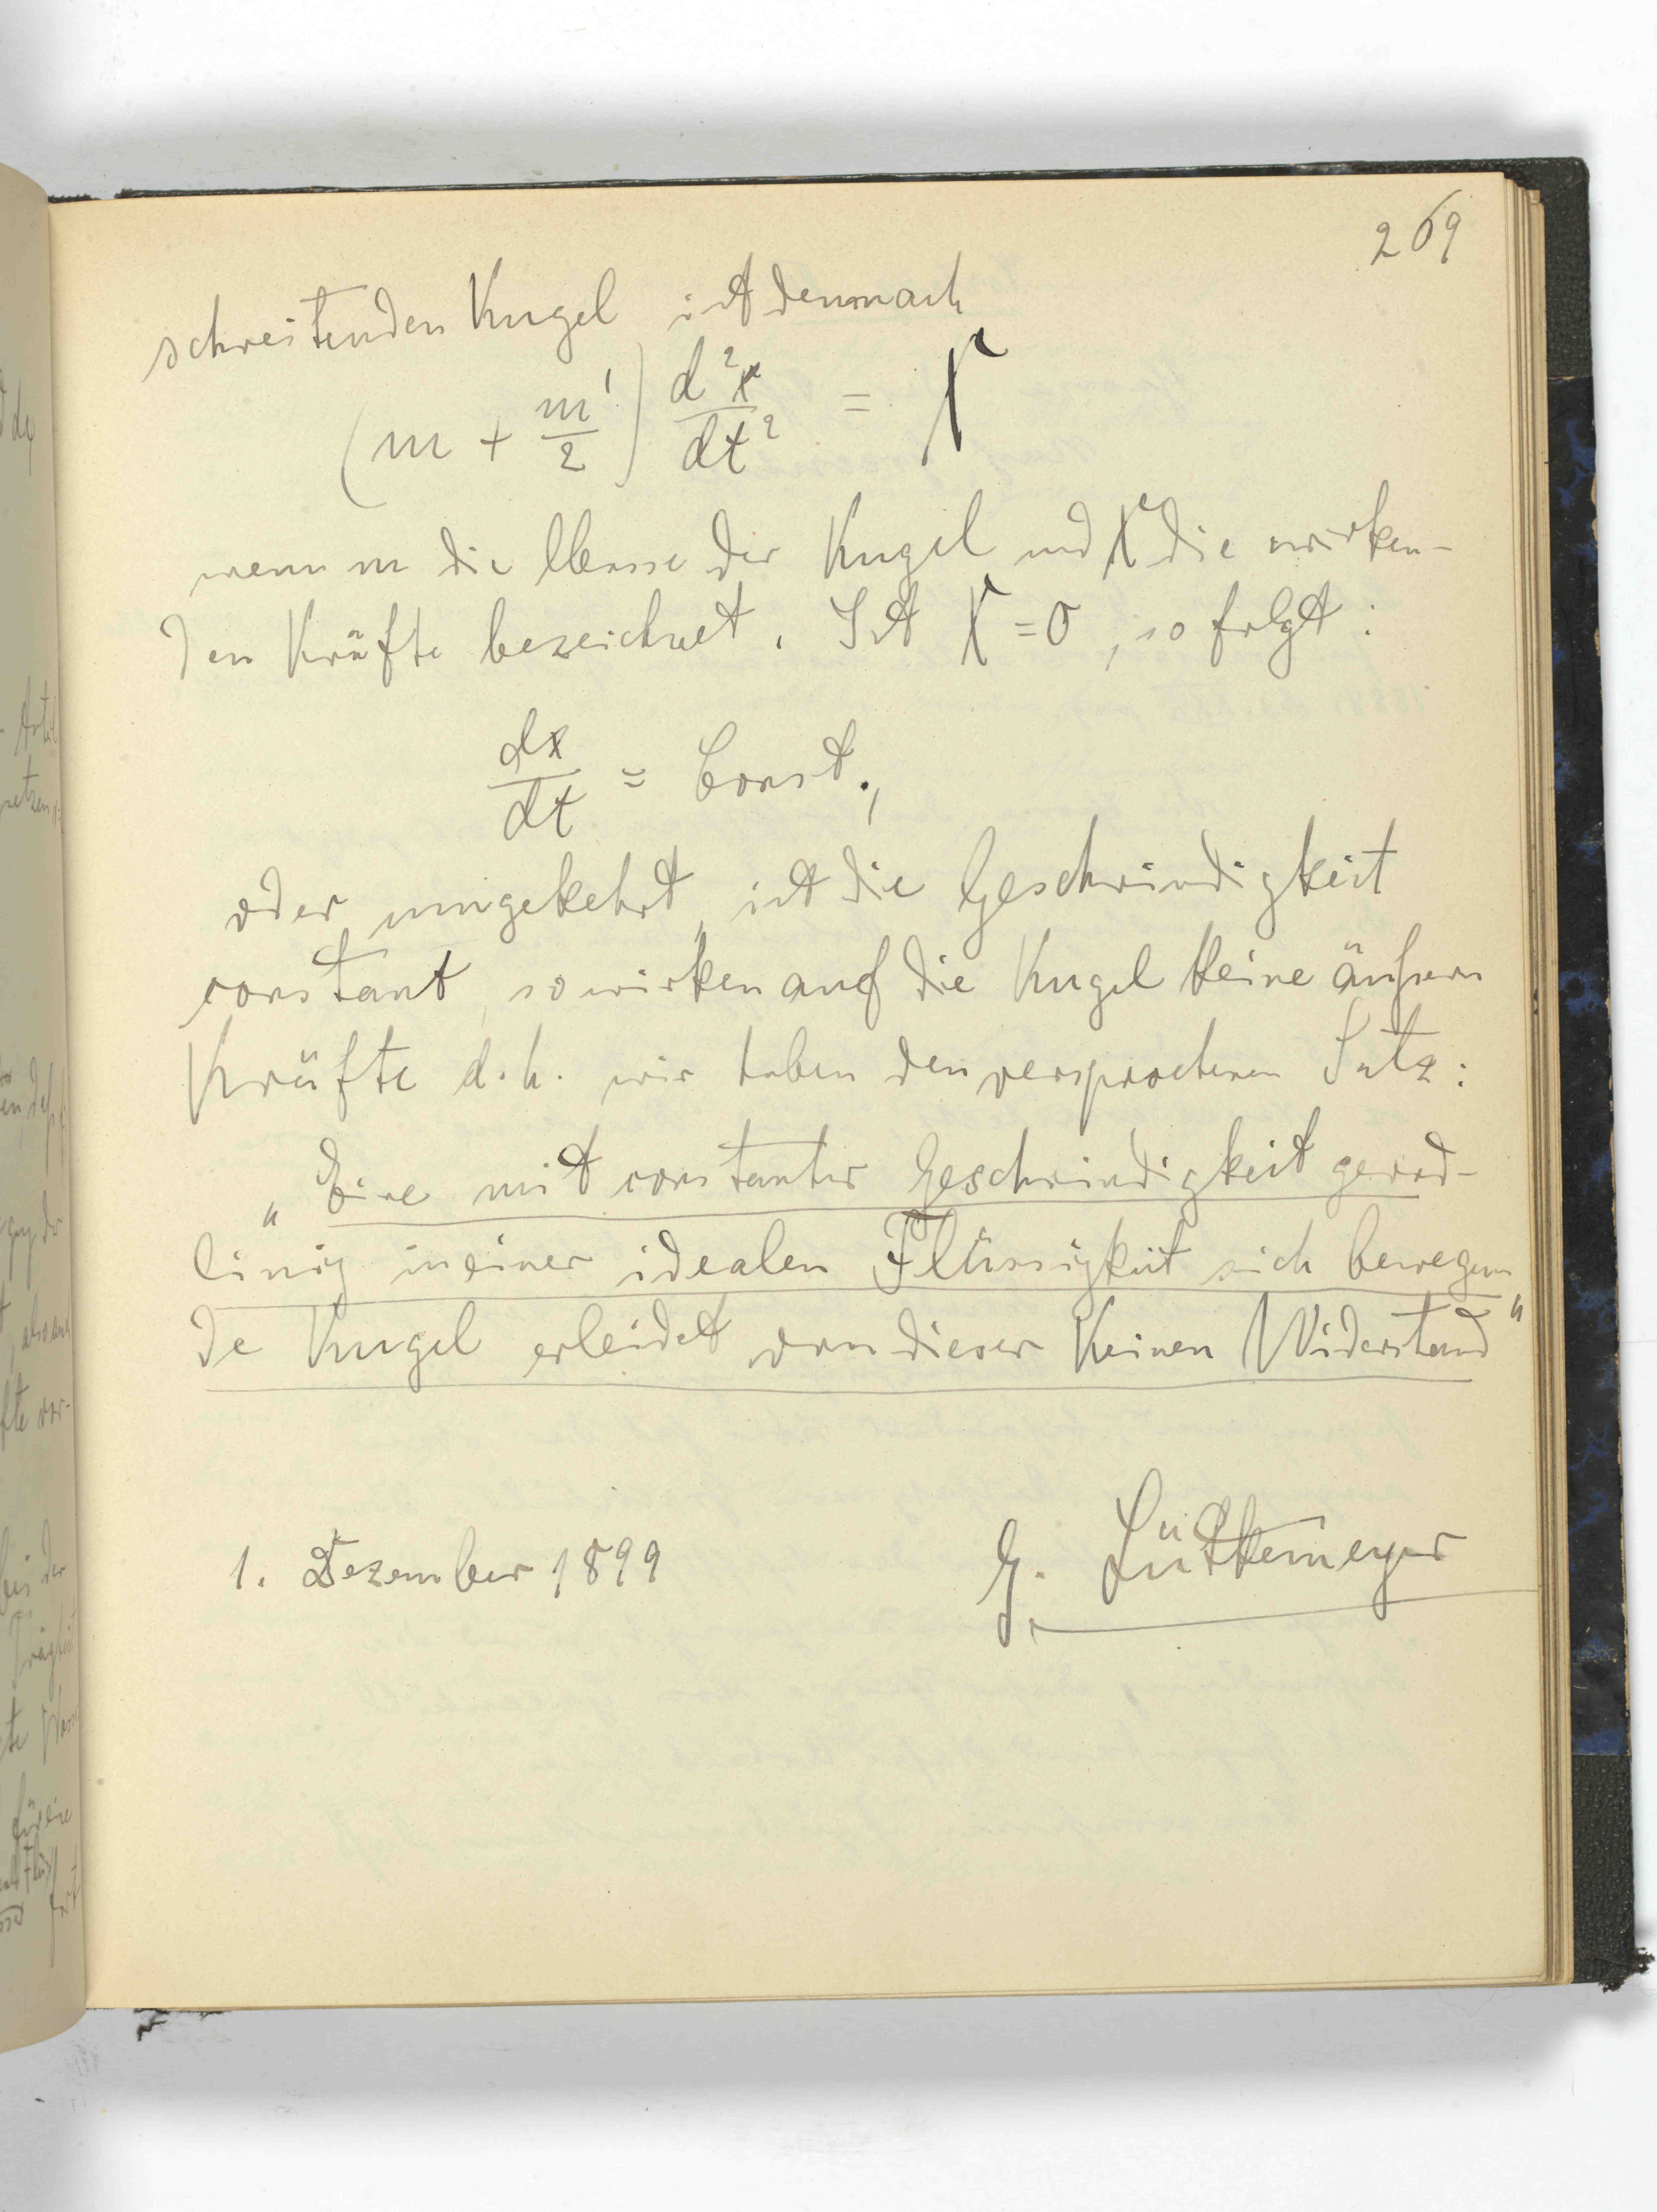 269
schreitenden Kugel ist demnach
(m + m'/2) d²x/dt² = X
wenn m die Masse der Kugel und X die wirken-
den Kräfte bezeichnet. Ist X = 0, so folgt:
dx/dt = Const.,
oder umgekehrt, ist die Geschwindigkeit
constant, so wirken auf die Kugel keine äußern
Kräfte d. h. wir haben den versprochenen Satz:
„Eine mit constanter Geschwindigkeit gerad-
linig in einer idealen Flüssigkeit sich bewegen
de Kugel erleidet von dieser keinen Widerstand"
1. Dezember 1899
G. Lüttemeyer